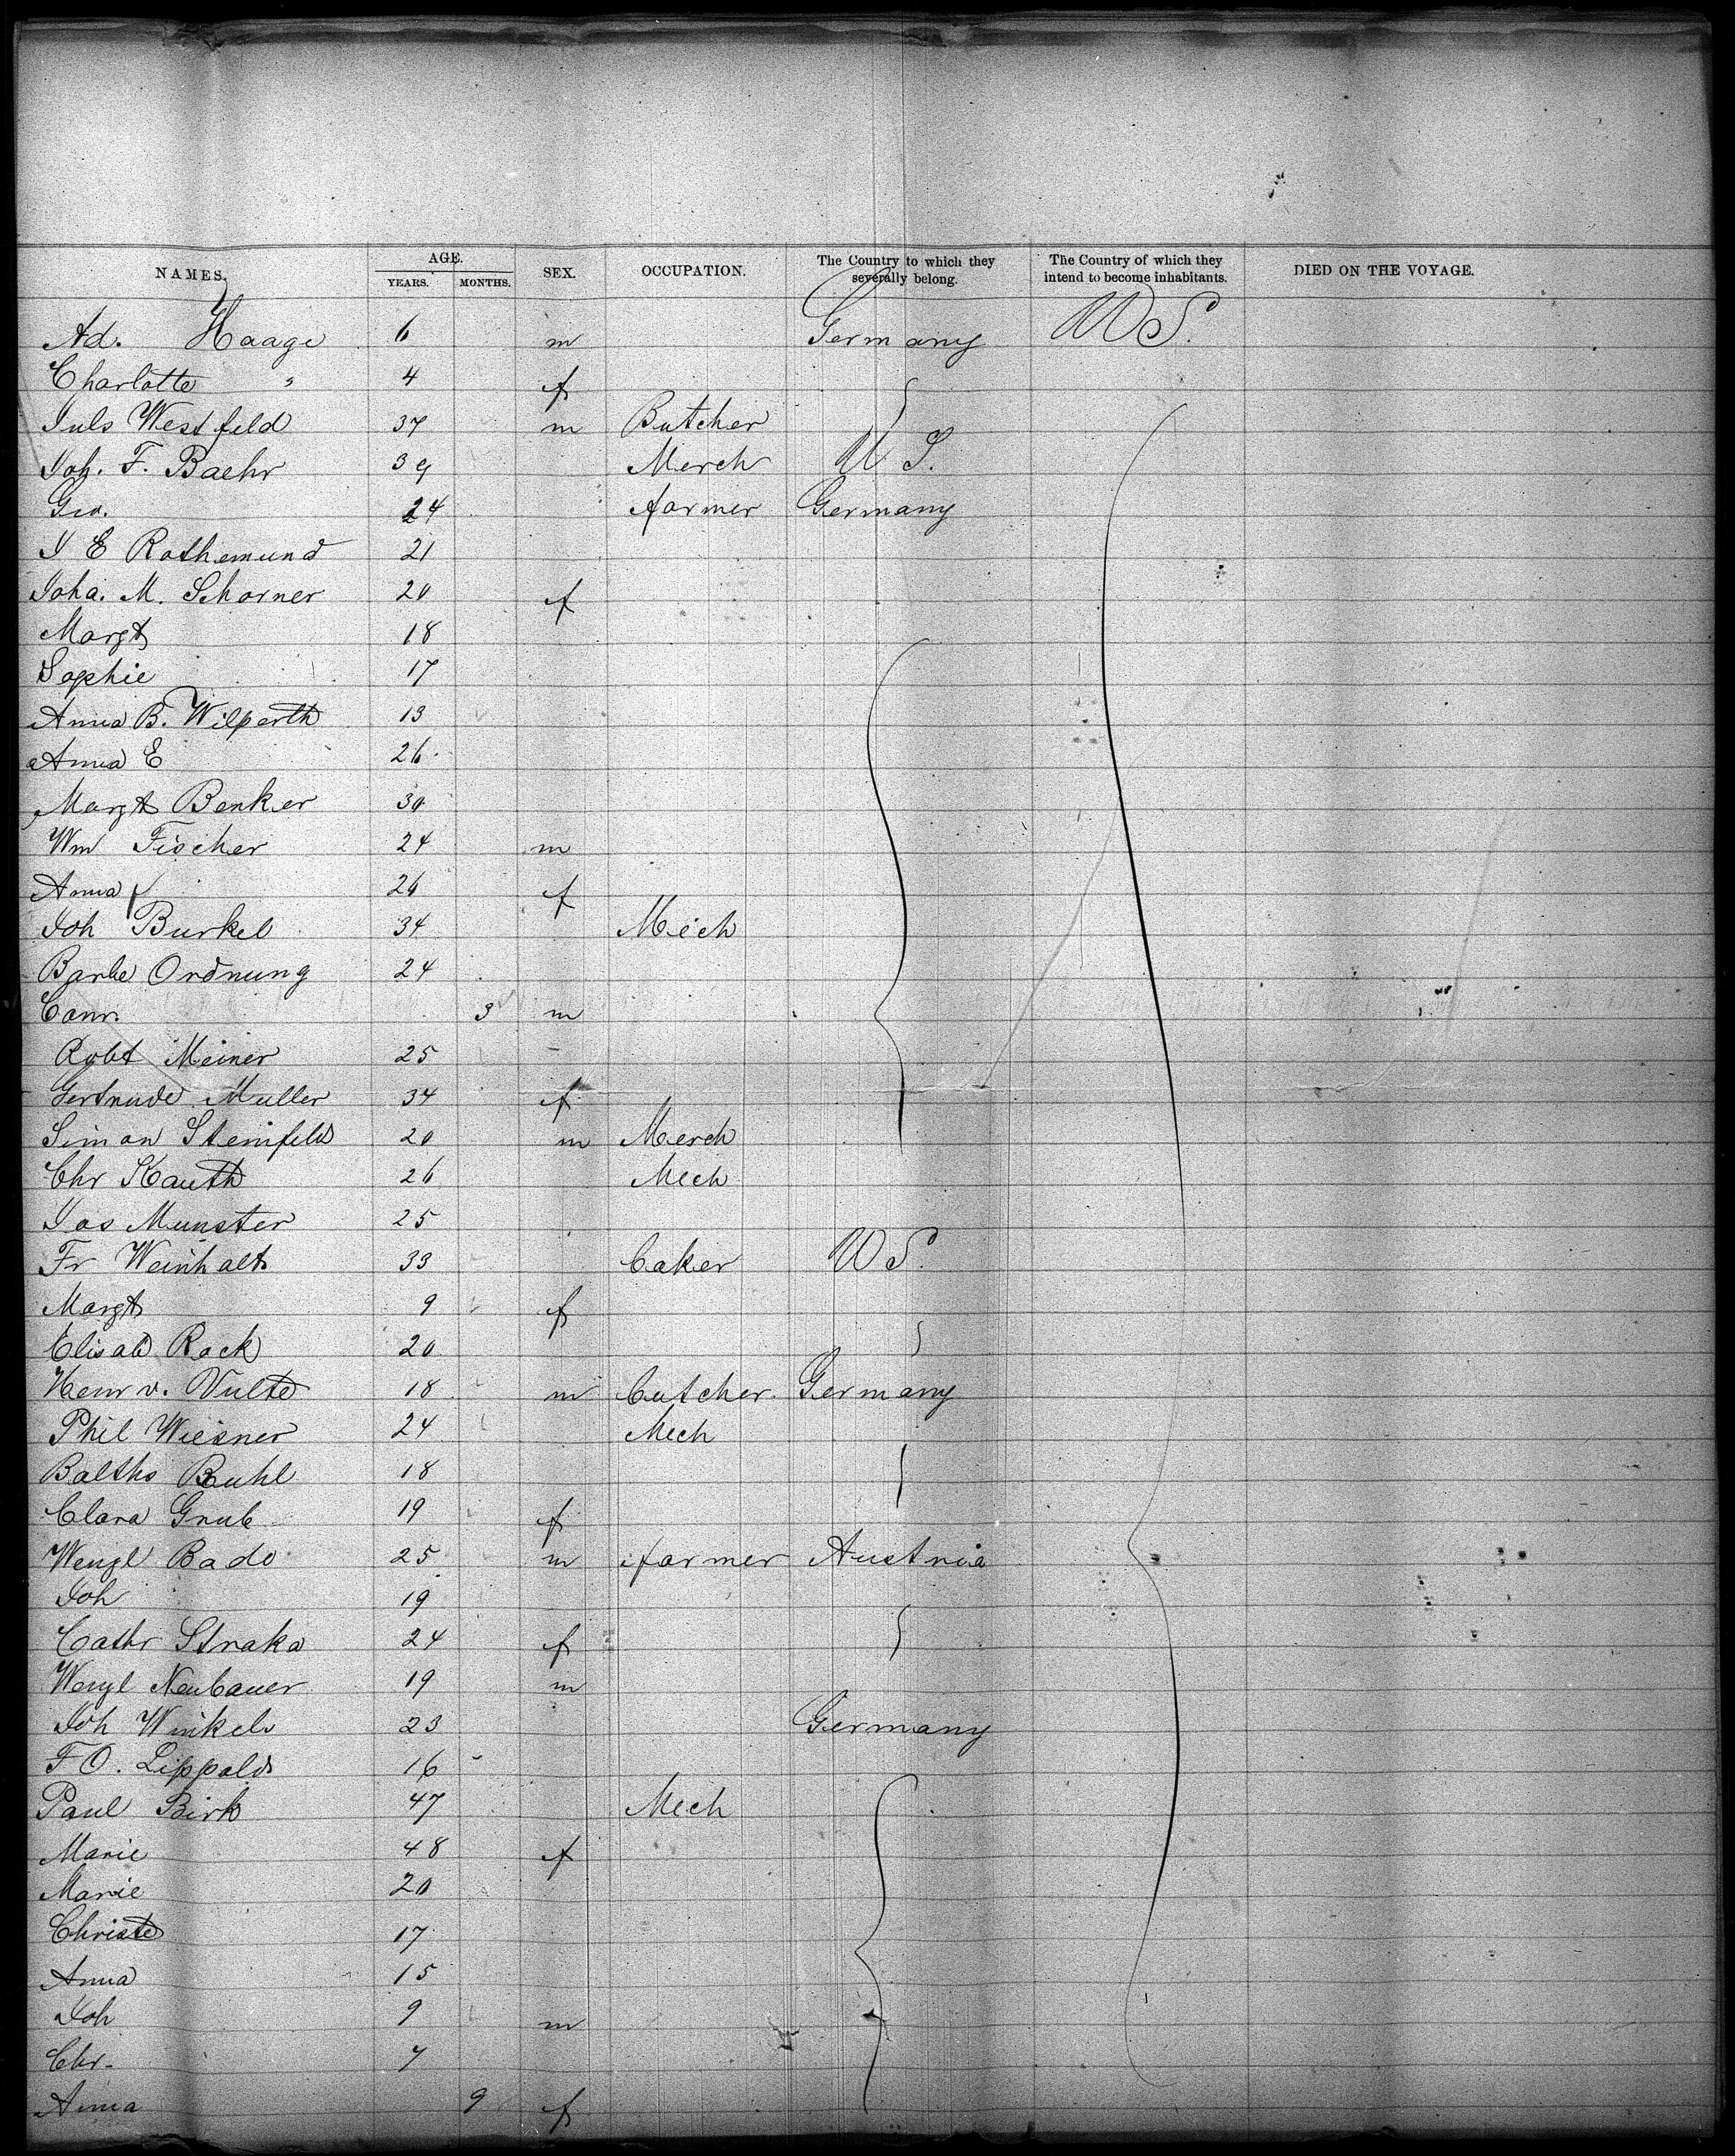 NAMES. AGE. YEARS. MONTHS. SEX. OCCUPATION. The Country to which they severally belong. The Country of which they intend to become inhabitants. DIED ON THE VOYAGE.
Ad. Haage 6 m Germany U S.
Charlotte " 4 f
Juls Westfeld 37 m Butcher
Joh. F. Baehr 39 Merch U S.
Geo. 24 farmer Germany
J E Rothemund 21
Joha. M. Schorner 20 f
Margt 18
Sophie 17
Anna B. Wilperth 13
Anna E 26
Margt Benker 30
Wm Fischer 24 m
Anna 26 f
Joh Burkel 34 Mech
Barbe Ordnung 24
Conr. 3 m
Robt Meiner 25
Gertrude Muller 34 f
Simon Steinfeld 20 m Merch
Chr Kauth 26 Mech
Jos Munster 25
Fr Weinhalt 33 baker U S.
Margt 9 f
Elisab Rock 20
Henr v. Vulte 18 m butcher Germany
Phil Wiesner 24 Mech
Balths Buhl 18
Clara Grub 19 f
Wenzl Bade 25 m farmer Austria
Joh 19
Cathr Straka 24 f
Wenzl Neubauer 19 m
Joh Winkels 23 Germany
F O. Lippold 16
Paul Birk 47 Mech
Marie 48 f
Marie 20
Christe 17
Anna 15
Joh 9 m
Chr. 7
Anna 9 f